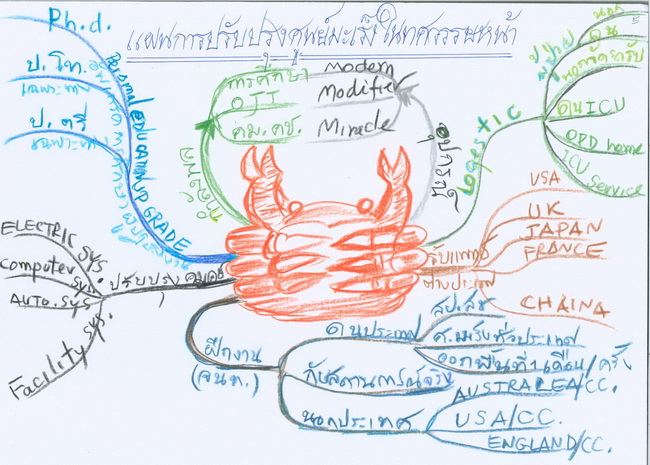 แผนการปรับปรุงศูนย์มะเร็งในทศวรรษหน้า
5
Ph.d.
ป.โท.
เฉพาะทาง
ป.ตรี
เฉพาะทาง
Personal EDUCATION UP GRADE
การศึกษา
OJT
คม.คช.
Modern
Modifier
Miracle
อุปกรณ์
Logestic
ผู้ป่วย
คน ICU
OPD home
ICU
Service
รับแพทย์
ต่างประเทศ
USA
UK
JAPAN
FRANCE
CHAINA
ELECTRIC SYS.
Computer sys.
AUTO.SYS
Facility sys.
ปรับปรุง
ฝึกงาน
(จนท.)
ในประเทศ
สป.สช
ศ.มะเร็งทั่วประเทศ
ออกพื้นที่ 1 เดือน/ครั้ง
กับสถานการณ์จริง
นอกประเทศ
AUSTRALEA/CC.
USA/CC.
ENGLAND/CC.